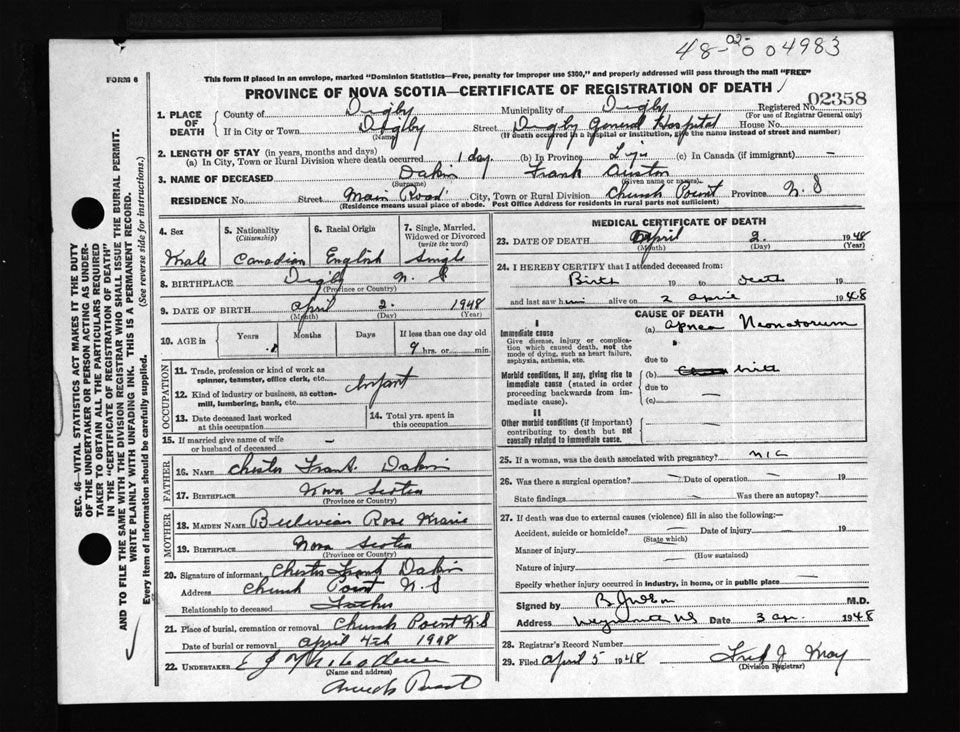 48-02-004983
FORM 6
This form if placed in an envelope, marked "Dominion Statistics—Free, penalty for improper use $300," and properly addressed will pass through the mail "FREE"
PROVINCE OF NOVA SCOTIA—CERTIFICATE OF REGISTRATION OF DEATH
Registered No. 02358
(For use of Registrar General only)
1. PLACE OF DEATH
County of Digby Municipality of Digby
If in City or Town Digby Street Digby General Hospital House No.
(Name) (If death occurred in a hospital or institution, give the name instead of street and number)
2. LENGTH OF STAY (in years, months and days)
(a) In City, Town or Rural Division where death occurred 1 day. (b) In Province (c) In Canada (if immigrant) —
3. NAME OF DECEASED Dakin Frank Auston
(Surname) (Given name or names)
RESIDENCE No. Street Main Road City, Town or Rural Division Church Point Province N.S
(Residence means usual place of abode. Post Office Address for residents in rural parts not sufficient)
4. Sex
Male
5. Nationality
(Citizenship)
Canadian
6. Racial Origin
English
7. Single, Married, Widowed or Divorced
(write the word)
Single
8. BIRTHPLACE Digby N. S
(Province or Country)
9. DATE OF BIRTH April 2. 1948
(Month) (Day) (Year)
10. AGE in Years Months Days If less than one day old
9 hrs. or min.
OCCUPATION
11. Trade, profession or kind of work as spinner, teamster, office clerk, etc.
Infant
12. Kind of industry or business, as cotton-mill, lumbering, bank, etc.
13. Date deceased last worked at this occupation
14. Total yrs. spent in this occupation
15. If married give name of wife or husband of deceased —
FATHER
16. NAME Chester Frank Dakin
17. BIRTHPLACE Nova Scotia
(Province or Country)
MOTHER
18. MAIDEN NAME Rose
19. BIRTHPLACE Nova Scotia
(Province or Country)
20. Signature of informant Chester Frank Dakin
Address Church Point N.S
Relationship to deceased Father
21. Place of burial, cremation or removal Church Point N.S
Date of burial or removal April 4th 1948
22. UNDERTAKER E J
(Name and address)
MEDICAL CERTIFICATE OF DEATH
23. DATE OF DEATH April 2. 1948
(Month) (Day) (Year)
24. I HEREBY CERTIFY that I attended deceased from:
Birth 19 to death 19
and last saw him alive on 2 April 1948
CAUSE OF DEATH
I
Immediate cause
Give disease, injury or complication which caused death, not the mode of dying, such as heart failure, asphyxia, asthenia, etc.
(a) Apnea Neonatorum
due to
Morbid conditions, if any, giving rise to immediate cause (stated in order proceeding backwards from immediate cause).
(b) birth
due to
(c)
II
Other morbid conditions (if important) contributing to death but not causally related to immediate cause.
25. If a woman, was the death associated with pregnancy?
26. Was there a surgical operation? — Date of operation — 19
State findings — Was there an autopsy?
27. If death was due to external causes (violence) fill in also the following:—
Accident, suicide or homicide? Date of injury — 19
(State which)
Manner of injury —
(How sustained)
Nature of injury —
Specify whether injury occurred in industry, in home, or in public place —
Signed by M.D.
Address Date 3 Ap. 1948
28. Registrar's Record Number
29. Filed April 5 1948 Fred J May
(Division Registrar)
SEC. 46—VITAL STATISTICS ACT MAKES IT THE DUTY
OF THE UNDERTAKER OR PERSON ACTING AS UNDER-
TAKER TO OBTAIN ALL THE PARTICULARS REQUIRED
IN THE "CERTIFICATE OF REGISTRATION OF DEATH"
AND TO FILE THE SAME WITH THE DIVISION REGISTRAR WHO SHALL ISSUE THE BURIAL PERMIT.
WRITE PLAINLY WITH UNFADING INK. THIS IS A PERMANENT RECORD.
Every item of information should be carefully supplied. (See reverse side for instructions.)